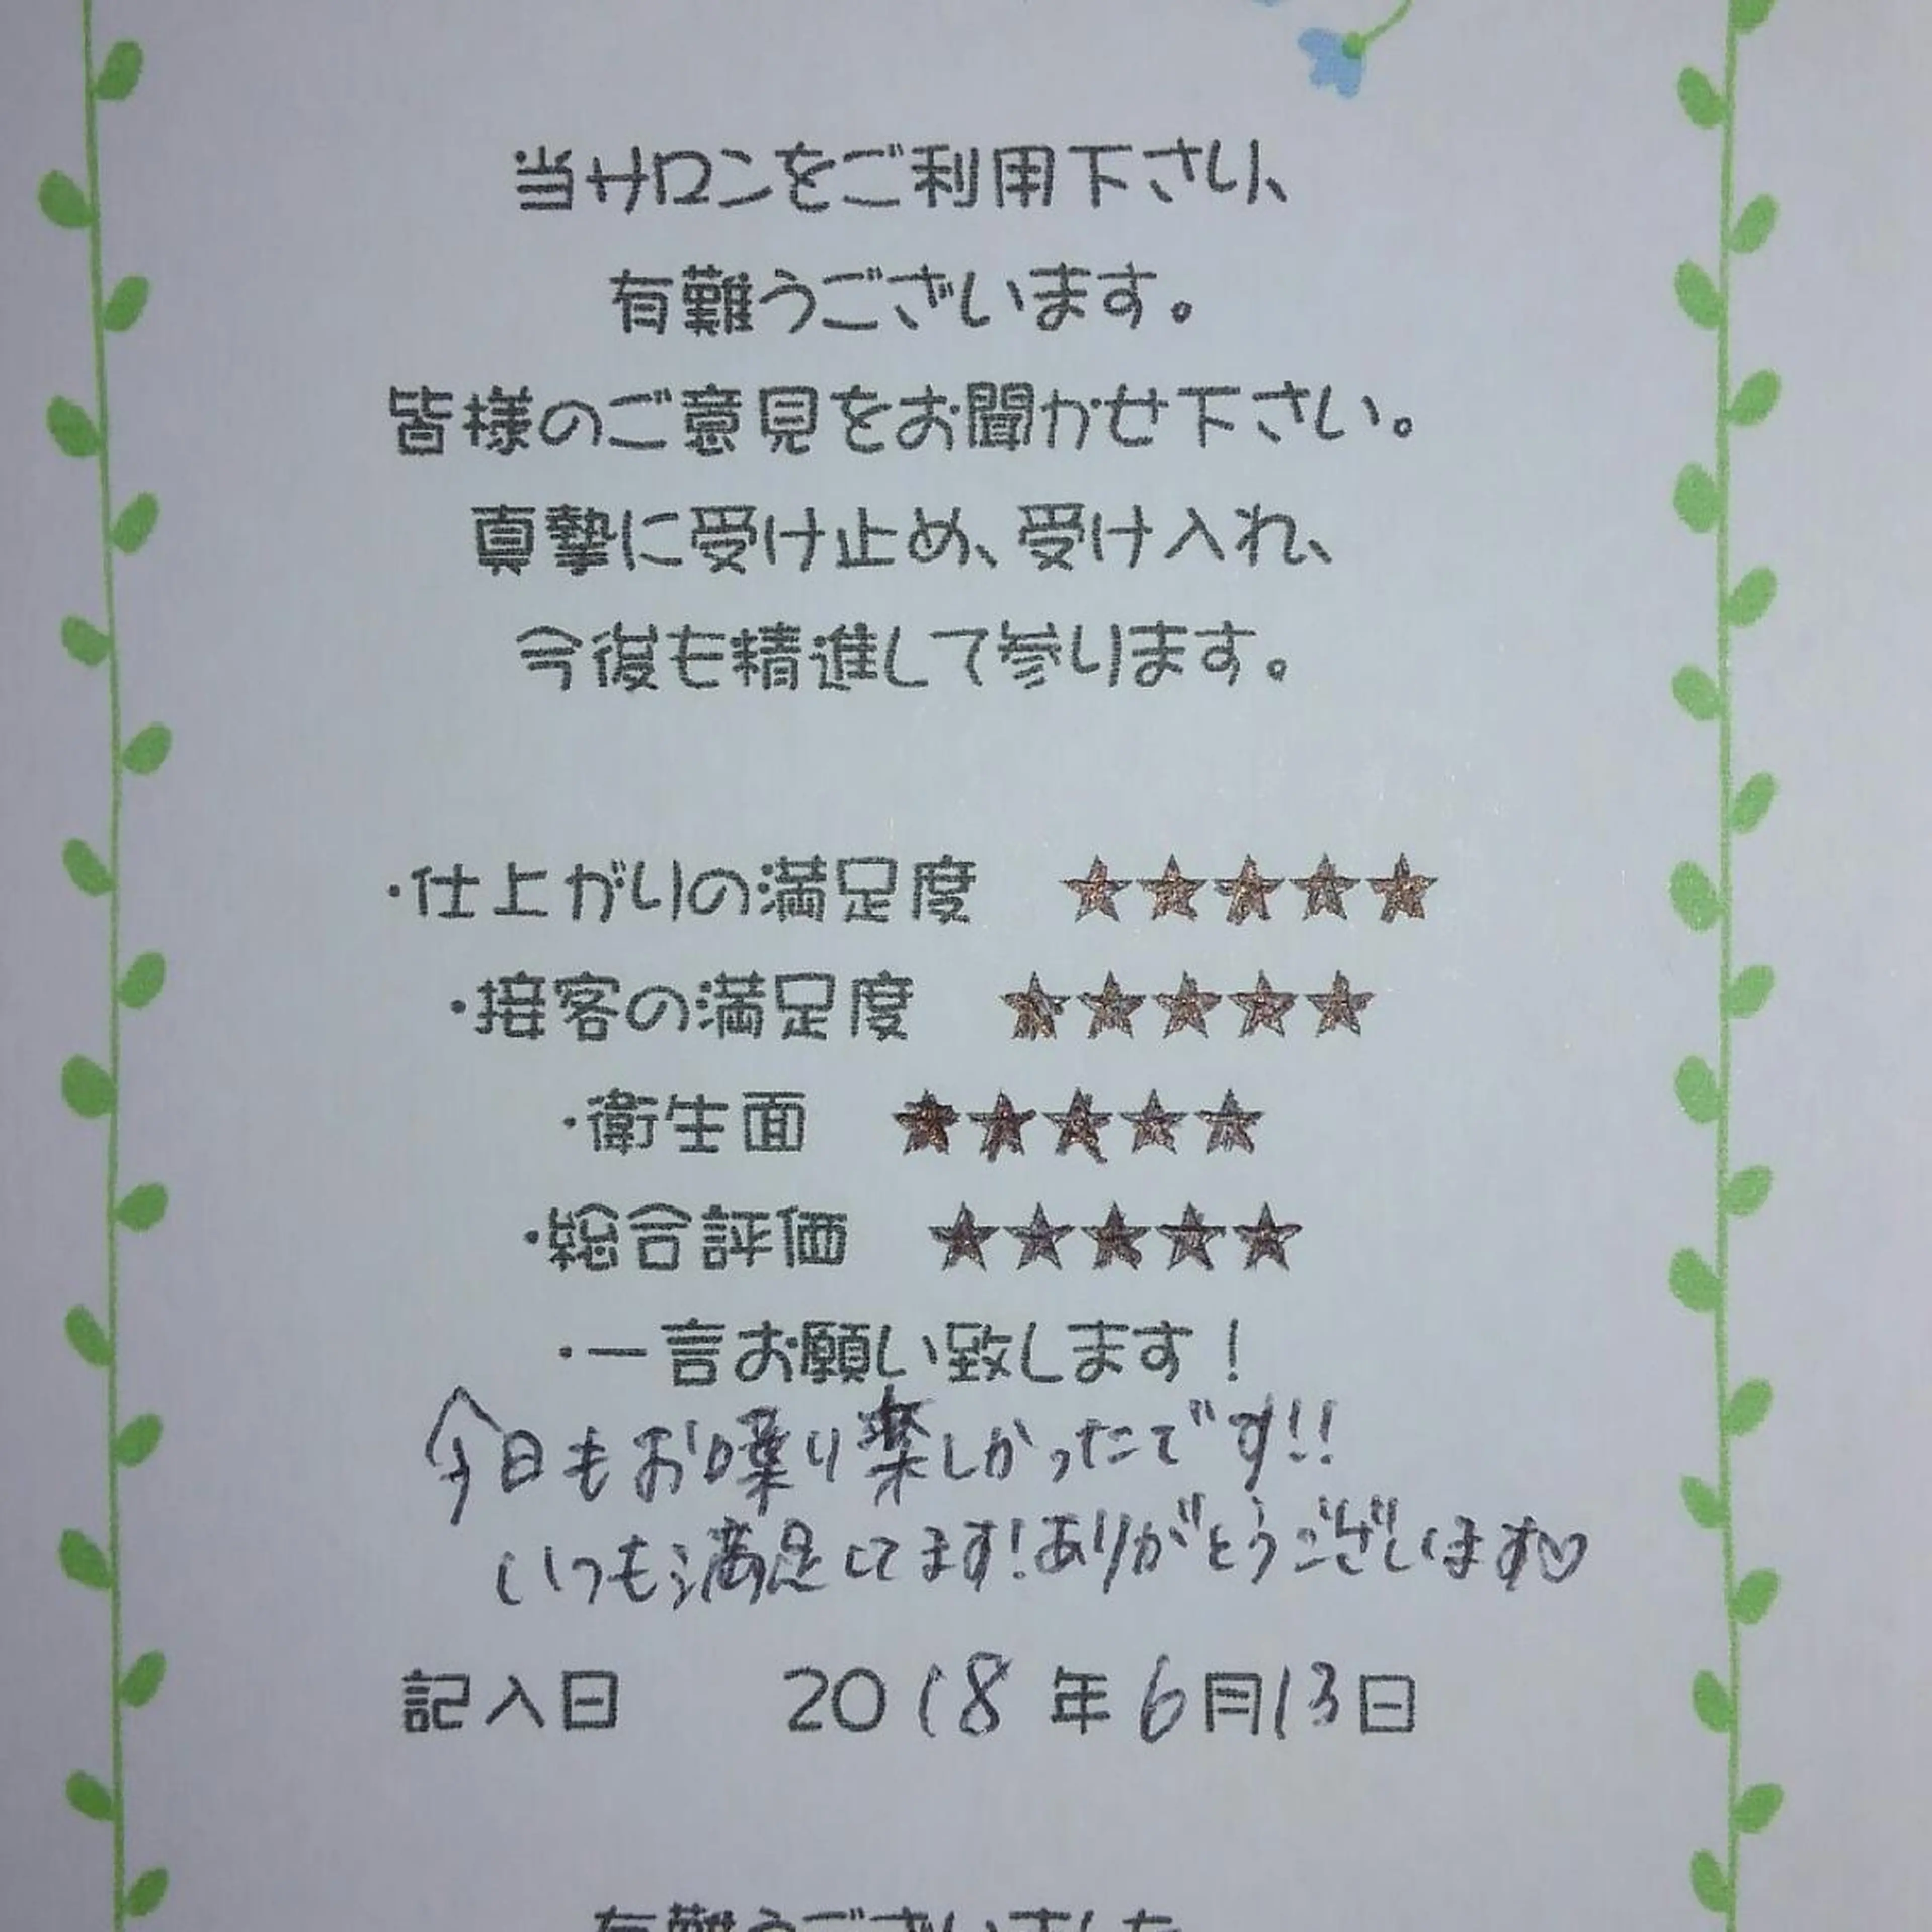 当サロンをご利用下さり、
有難うございます。
皆様のご意見をお聞かせ下さい。
真摯に受け止め、受け入れ、
今後も精進して参ります。
・仕上がりの満足度　★★★★★
・接客の満足度　★★★★★
・衛生面　★★★★★
・総合評価　★★★★★
・一言お願い致します！
今日もお喋り楽しかったです!!
いつも満足してます!ありがとうございます♡
記入日　2018年6月13日
有難うございました